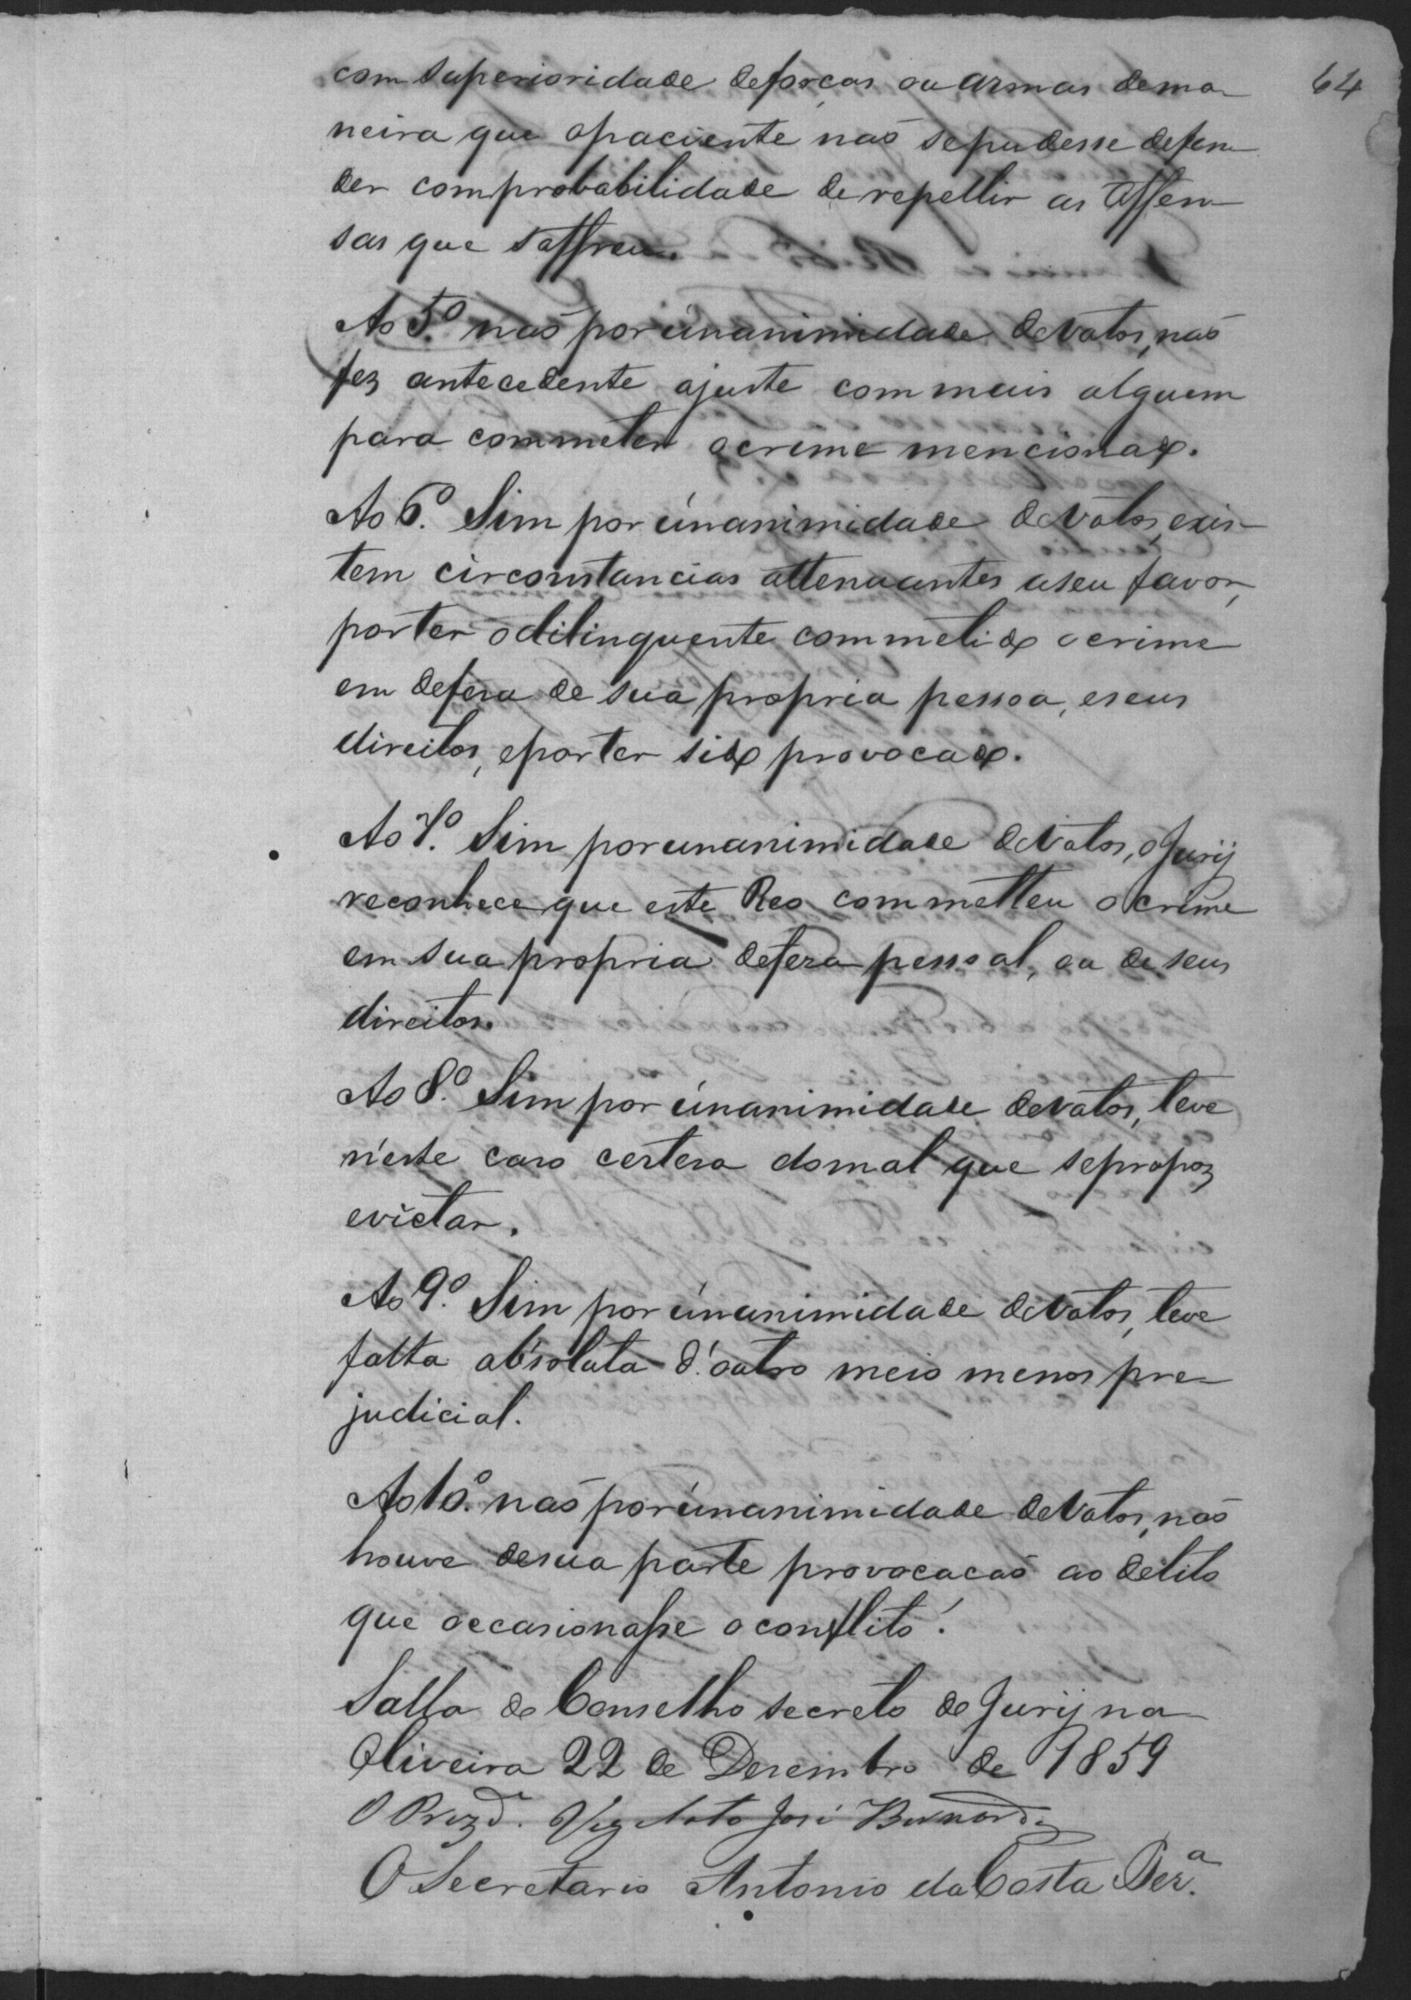 64
com superioridade deforças ou armas dema-
neira que opaciente naõ sepudesse defen-
der comprobabilidade de repellir as Offen-
sas que soffreu.
Ao 5º. naõ por únanimidade deVotos, naõ
fez antecedente ajuste commais alguem
para commeter ocrime mencionado.
Ao 6º. Sim por únanimidade deVotos, exis-
tem circonstancias attenuantes aseu favor,
porter odilinquente commetido ocrime
em defesa de sua propria pessoa, eseus
direitos, eporter sido provocado.
Ao 7º. Sim porunanimidade deVotos, oJurÿ
reconhece que este Reo commetteu ocrime
em sua propria defeza pessoal, ou de seus
direitos.
Ao 8º. Sim por únanimidade deVotos, teve
n'este caso certesa domal que sepropoz
evictar.
Ao 9º. Sim por únanimidade deVotos, teve
falta absoluta d'outro meio menos pre-
judicial.
Ao 10º. naõ por únanimidade deVotos, naõ
houve desua parte provocacaõ ao delito
que occasionasse oconflito.
Salla do Conselho secreto do Jurÿ na
Oliveira 22 de Desembro de 1859
O Prezd.e José Bernard.
O Secretario Antonio da Costa Per.ª